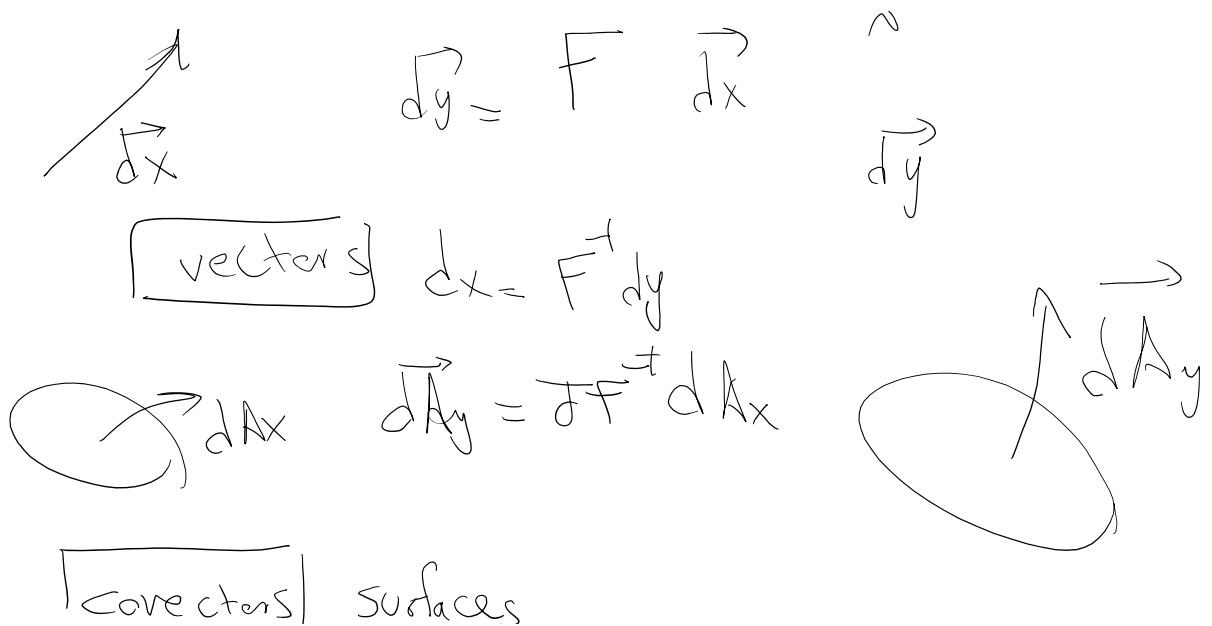 ~
dy⃗ = F dx⃗
dx⃗
dy⃗
vectors dx = F⁻¹ dy
dAx dA⃗y = JF⁻ᵗ dAx dA⃗y
covectors surfaces